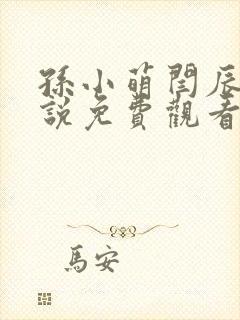 孫小萌閆辰
說免費觀看
馬安